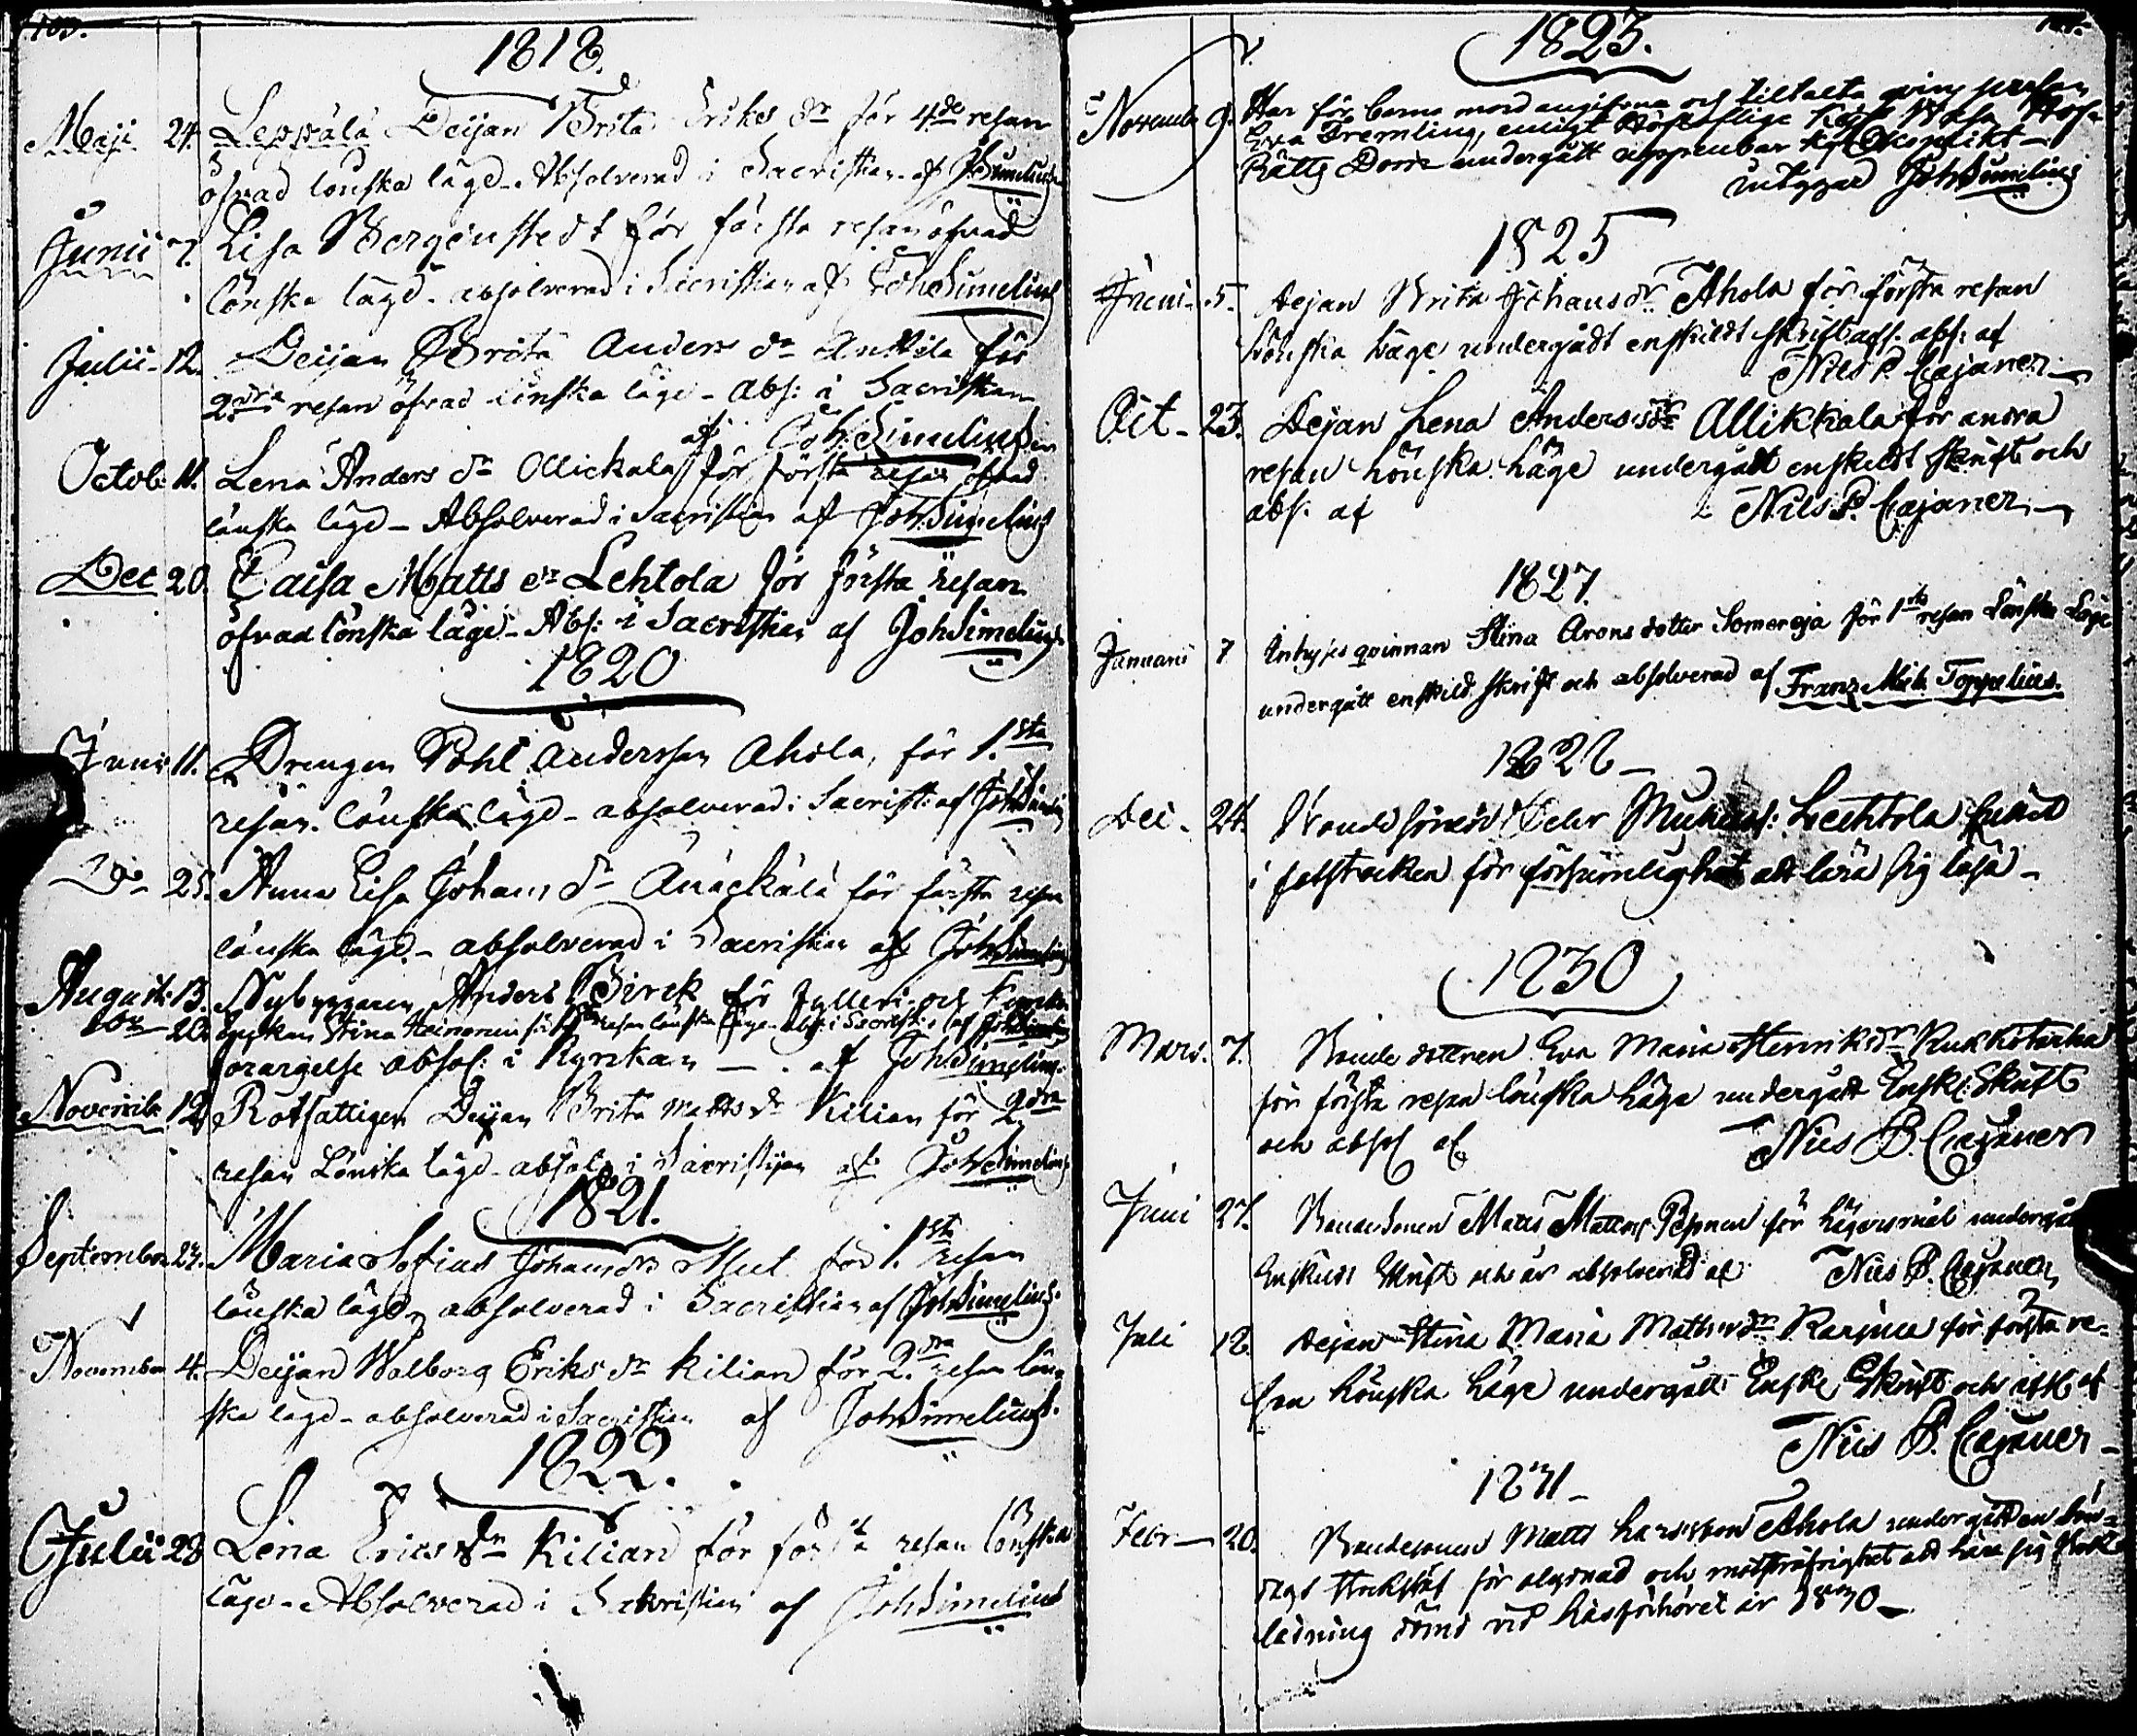 103.
1818.
Maji 24. Leppälä Deijan Brita Eriks dr för 4de resan
öfvad lönska läge - Absolverad i Sacristian af JohSimelius
Junii 7. Lisa Bergenstedt för första resan öfvad
lönska läge - absolverad i Sacristian af JohSimelius
Julii 12. Deijan Brita Anders dr Anttila för
2dra resan öfvad lönska läge - Abs: i Sacristian
af JohSimelius
Octob. 11. Lena Anders dr Ollickala för första resan öfvad
lönska läge - Absolverad i Sacristian af JohSimelius
Dec 20. Caisa Matts dr Lehtola för första resan
öfvad lönska läge - Abs: i Sacristian af JohSimelius
1820
Junii 11. Drengen Pohl Andersson Ahola, för 1.sta
resan lönska läge - absolverad i Sacristi: af JohSimelius
Do 25. Anna Lisa Johans dr för första resan
lönska läge - absolverad i Sacristian af JohSimelius
Augusti 13. Nybyggaren Anders Birck för fylleri och
do 20. Stina Heinonen för resan lönska läge abs: i Sacristi: af JohSimelius
förargelse absol: i Kyrckan - af JohSimelius
Novemb. 12. Rotfattigen Deijan Brita Matts dr Kilian för 2dra
resan Lönska läge - absolv i Sacristijan af JohSimelius
1821.
September 23. Maria Sofia Johans dr för 1.sta resan
lönska läge - absolverad i Sacristian af JohSimelius
November 4. Deijan Walborg Eriks dr Kilian för 2.dra resan lön
ska läge - absolverad i Sacristian af JohSimelius.
1822.
Julii 28 Lena Erics dr Kilian för första resan lönska
läge - Absolverad i Sackristian af JohSimelius
1823.
Novemb. 9. Har för barna mord angifvna och tiltalta qvins person
Eva Fremling, enligt Höglofliga Kejs. Wasa Hof-
Rätts Dom undergått uppenbar Kyrkoplikt -
intygad JohSimelius
1825
Juni 5. Dejan Brita Johans dr Ahola för första resan
Lönska Läge undergådt enskildt skrift abs: af
Nils P. Cajaner
Oct - 23. Dejan Lena Anders dr Allikkala för andra
resan Lönska Läge undergått enskildt Skrift och
abs. af Nils P. Cajaner
1827.
Januari 7 Inhyses qvinnan Stina Arons dotter Someroja för 1sta resan Lönska Läge
undergått enskild skrift och absolverad af Franz Mich. Toppelius.
1828 -
Dec. 24. Bonde sonen Lechtola
i fotstocken för försumlighet att lära sig läsa -
1830
Mars. 7. Bonde dottren Eva Maria Henriks dr
för första resan lönska Läge undergått Enskl: Skrift
och absol af Nils P. Cajaner
Juni 27. Bondesonen Matts Mattsson för Lägersmål undergått
Enskildt Skrift och är absolverad af Nils P. Cajaner
Juli 12. Dejan Stina Maria Matts dr för första re-
san Lönska Läge undergått Enskl: Skrift och abs af
Nils P. Cajaner -
1831 -
Febr - 20. Bondesonen Matts Larsson Ahola undergått en Sön-
dags Stockstraf för olydnad och motsträfvighet att lära sig
ledning dömd vid Läsförhöret år 1830 -